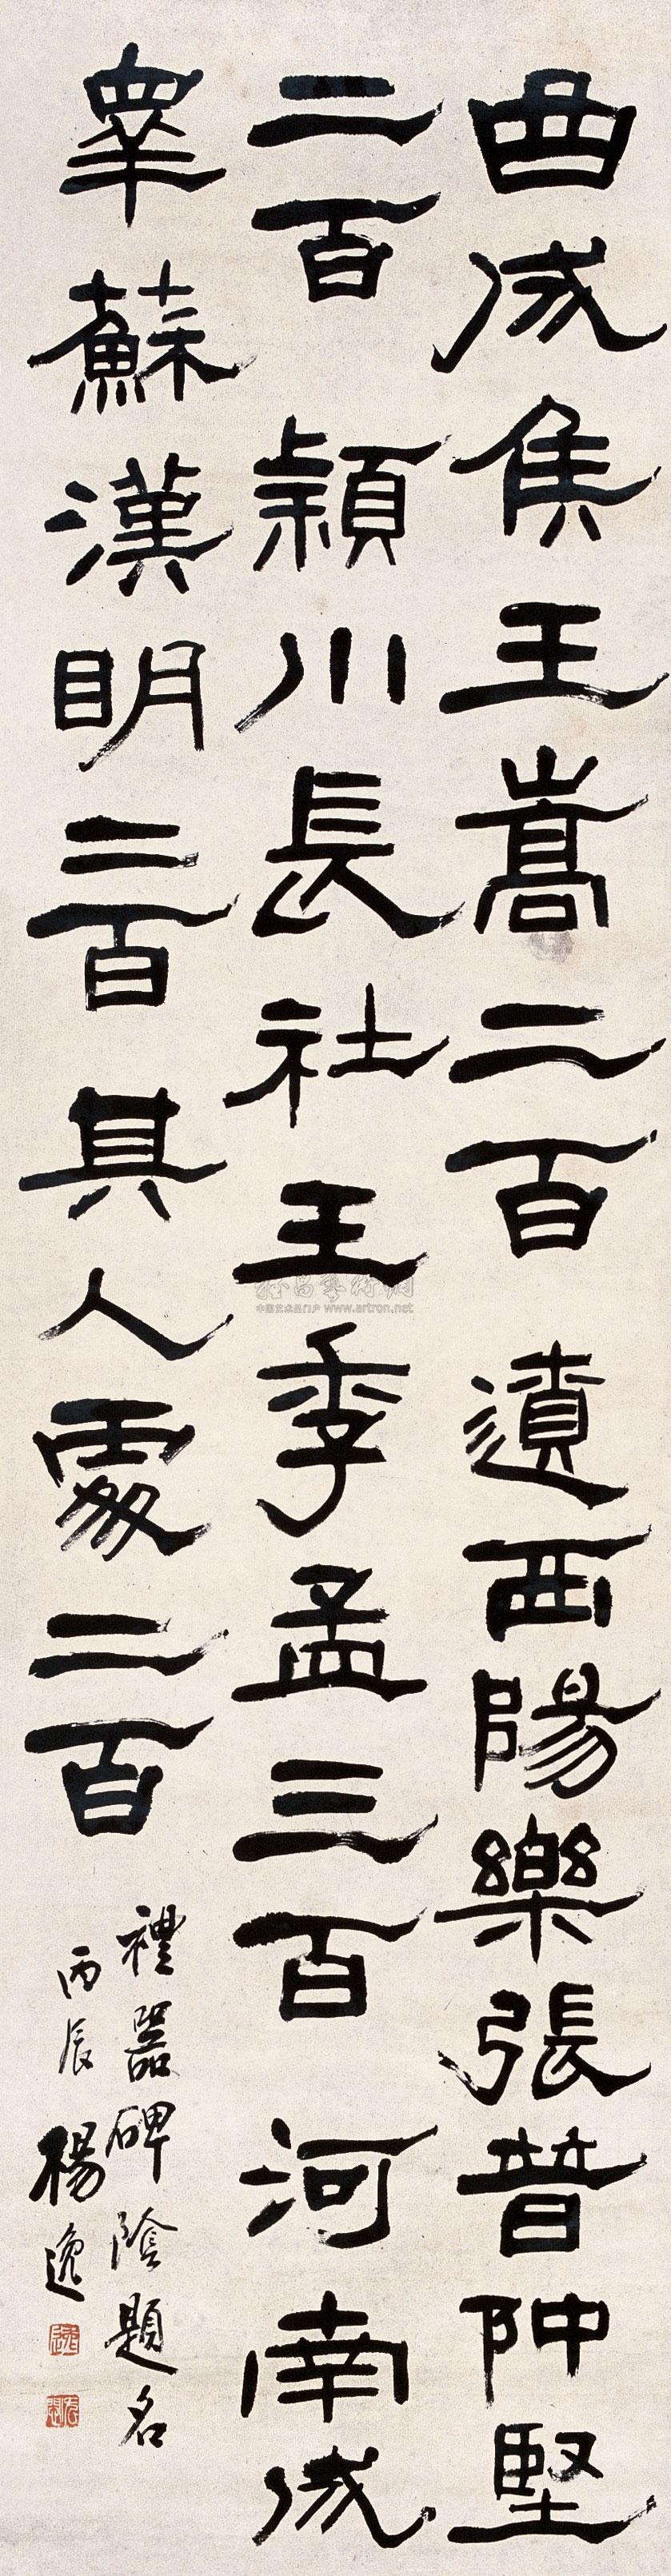 曲成侯王嵩二百 遼西陽樂張普仲堅
二百 潁川長社王季孟三百 河南成
皋蘇漢明二百 其人處二百
禮器碑陰題名
丙辰 楊逸
雅昌藝術網
中国艺术品门户 www.artron.net